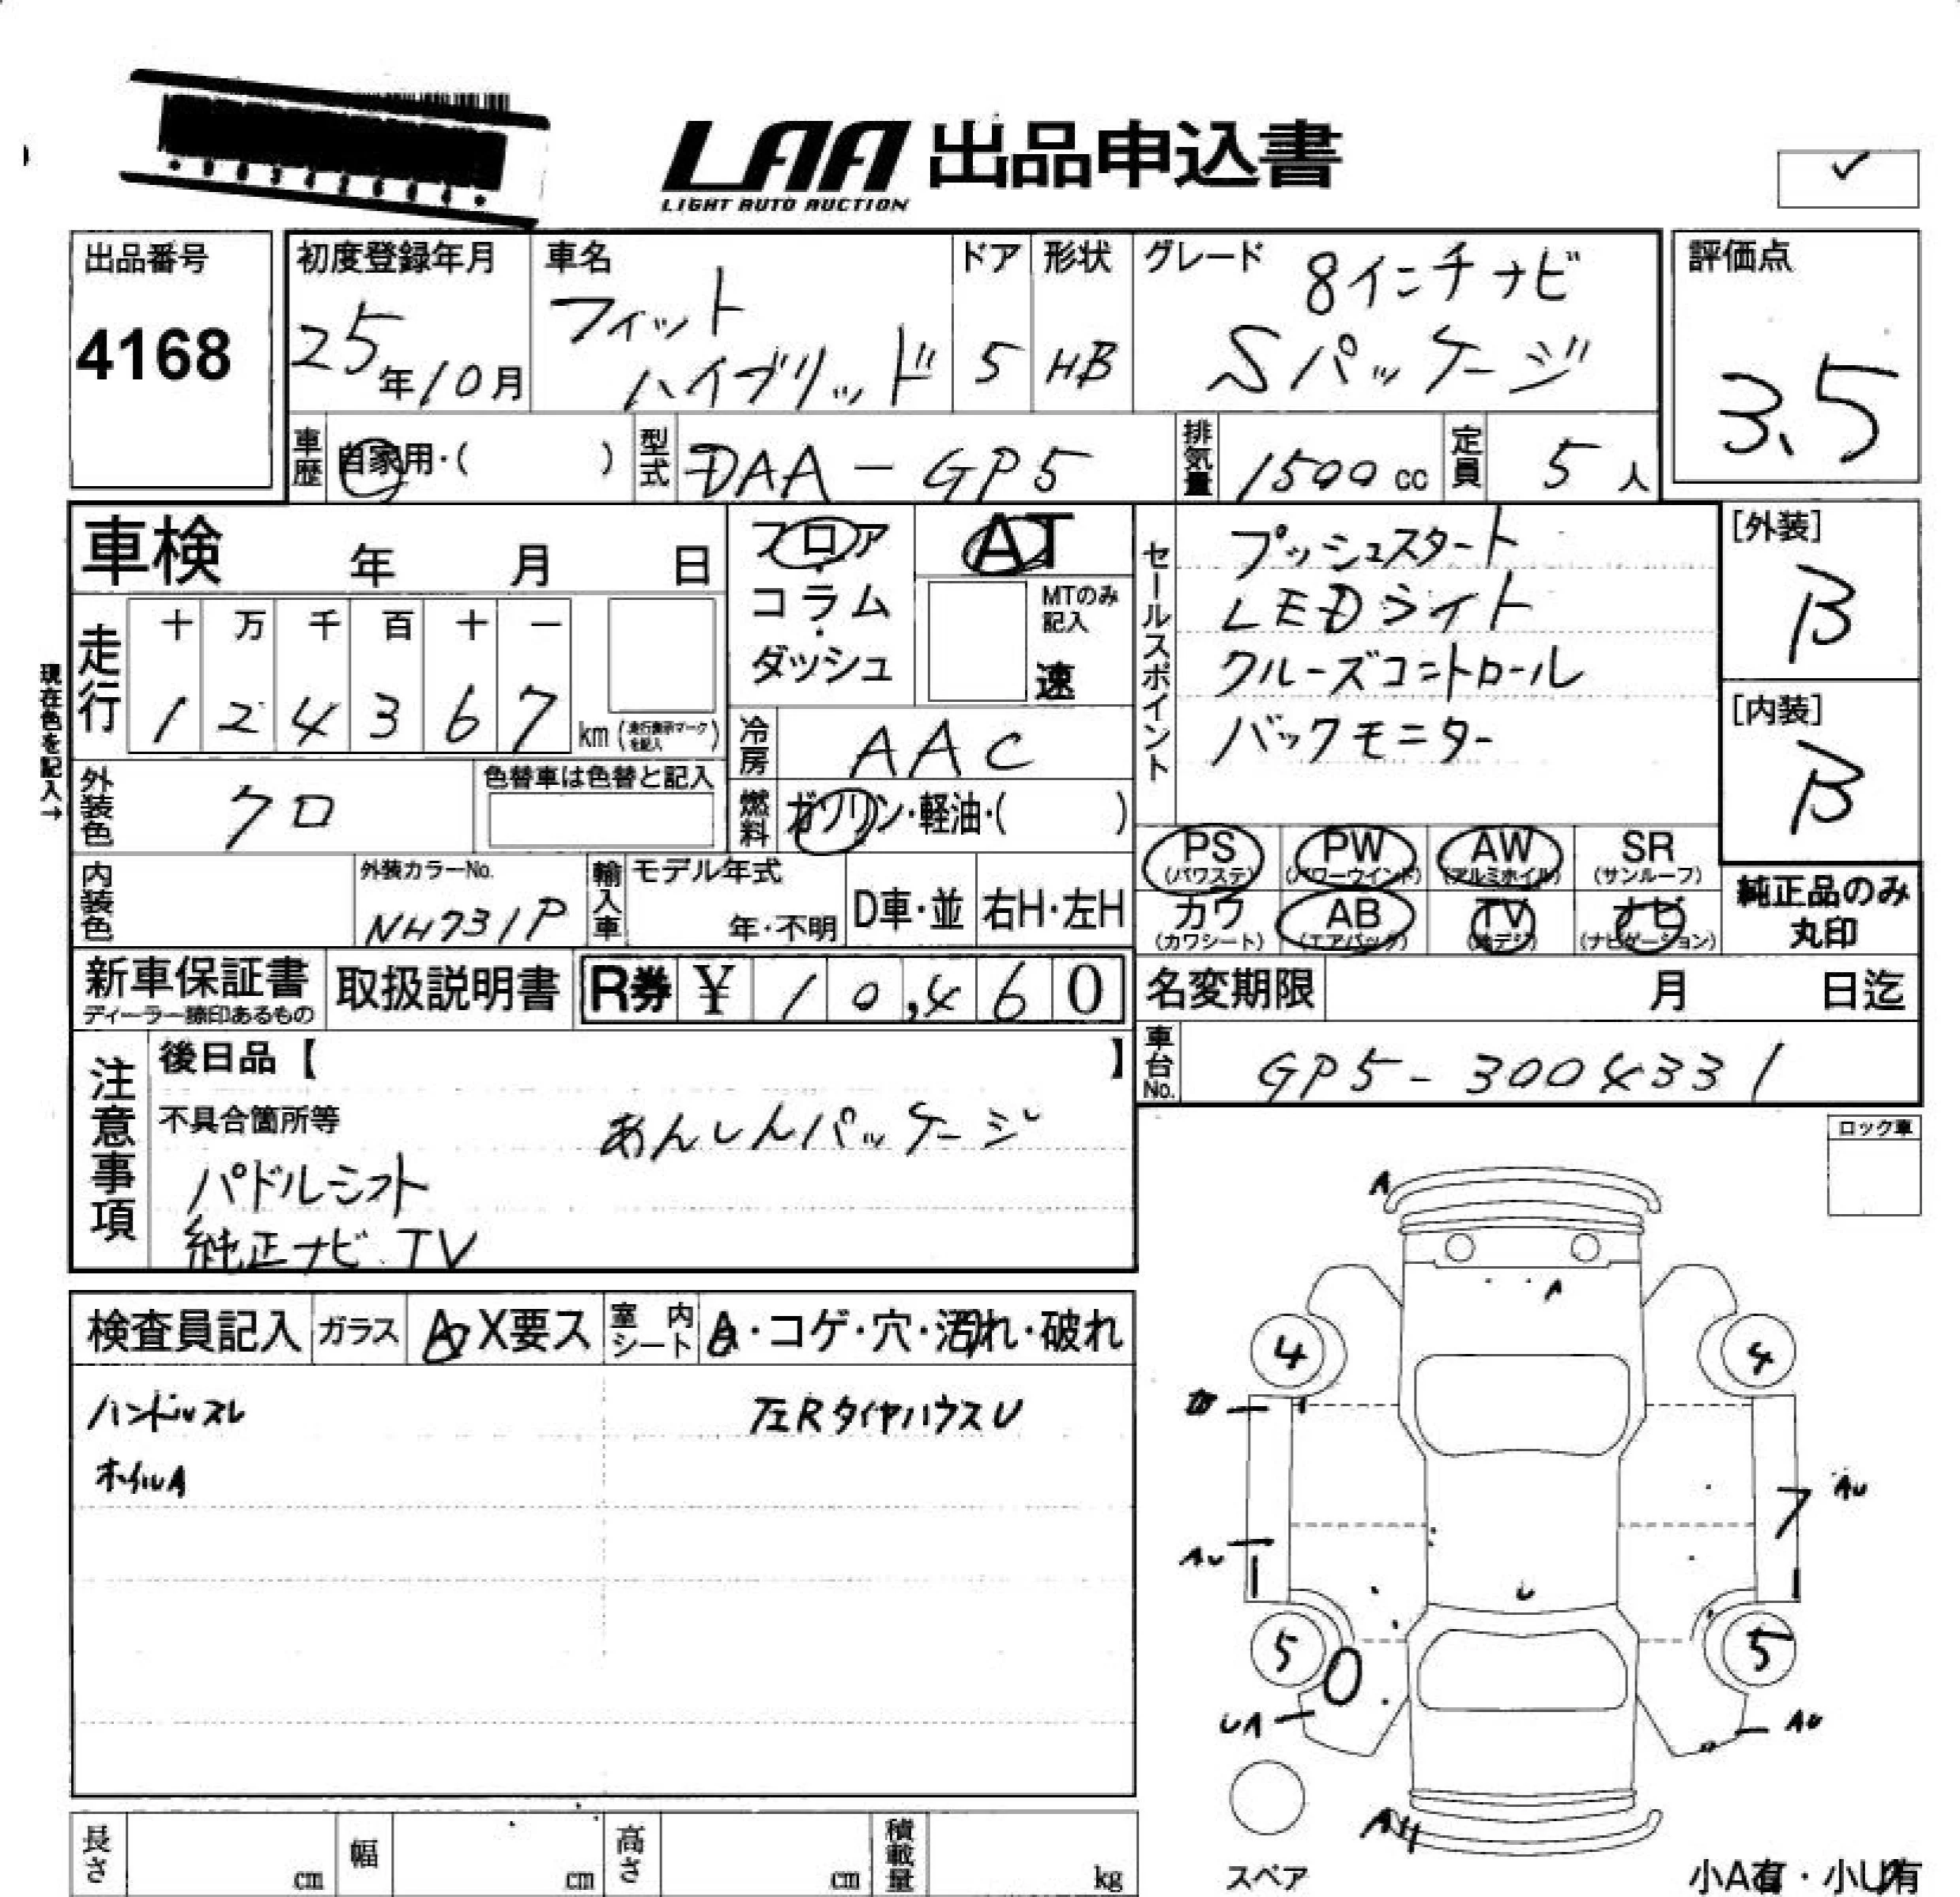 LAA 出品申込書
LIGHT AUTO AUCTION
出品番号
4168
初度登録年月
25年10月
車名
フィット
ハイブリッド
ドア
5
形状
HB
グレード
8インチナビ
Sパッケージ
評価点
3.5
車歴
自家用・( )
型式
DAA-GP5
排気量
1500cc
定員
5人
車検 年 月 日
フロア
コラム
ダッシュ
AT
MTのみ
記入
速
セールスポイント
プッシュスタート
LEDライト
クルーズコントロール
バックモニター
[外装]
B
[内装]
B
現在色を記入→
走行
十 万 千 百 十 一
1 2 4 3 6 7 km
冷房
AAC
外装色
クロ
色替車は色替と記入
燃料
ガソリン・軽油・( )
PS
(パワステ)
PW
(パワーウインド)
AW
(アルミホイル)
SR
(サンルーフ)
カワ
(カワシート)
AB
(エアバック)
TV
(地デジ)
ナビ
(ナビゲーション)
純正品のみ
丸印
内装色
外装カラーNo.
NH731P
輸入車
モデル年式
年・不明
D車・並
右H・左H
新車保証書
ディーラー捺印あるもの
取扱説明書
R券 ¥ 10,460
名変期限 月 日迄
車台No.
GP5-3004331
注意事項
後日品【 】
不具合箇所等
あんしんパッケージ
パドルシフト
純正ナビ TV
ロック車
検査員記入
ガラス
A X要ス
室内シート
A・コゲ・穴・汚れ・破れ
ハンドルスレ
左RタイヤハウスU
ホイルA
A
A
4
4
AU
AU
7
U
5
5
0
UA
AU
スペア
小A有・小U有
長さ cm
幅 cm
高さ cm
積載量 kg